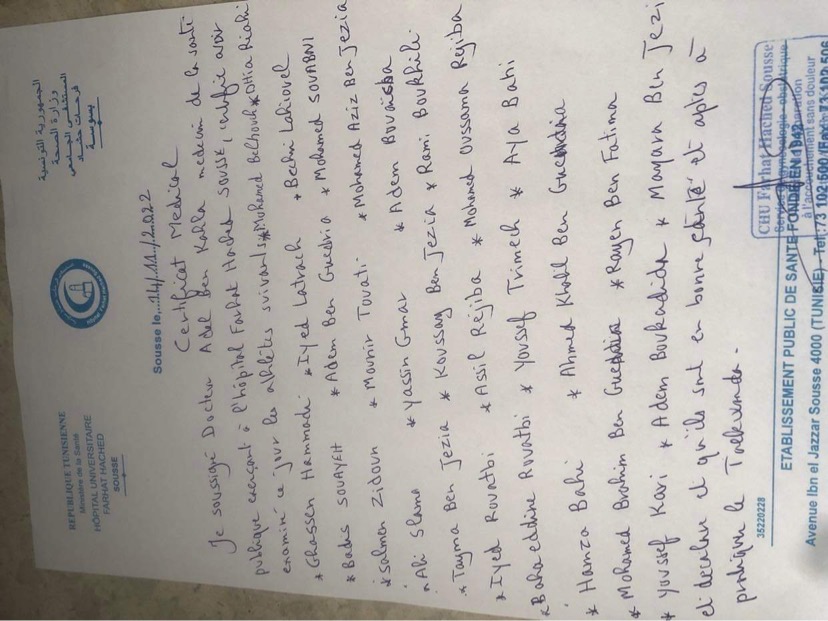 REPUBLIQUE TUNISIENNE
Ministère de la Santé
HÔPITAL UNIVERSITAIRE
FARHAT HACHED
SOUSSE
الجمهورية التونسية
وزارة الصحة
المستشفى الجامعي
فرحات حشاد
بسوسة
Sousse le,...14/11/2022
Certificat Medical
Je soussigné Docteur Adel Ben Kahla medecin de la santé
publique exerçant à l'hôpital Farhat Hached SOUSSE, certifie avoir
examiné ce jour les athlètes suivants * Mohamed Belhouk * Dhia Riahi
* Ghassen Hammadi * Iyed Latrach * Bechir Lahiouel
* Badis SOUAYEH * Adem Ben Guedria * Mohamed SOUABNI
* Salmen Zidoun * Mounir Touati * Mohamed Aziz Ben Jezia
* Ali Slama * Yassin Gmar * Adem Bouaisha
* Tayma Ben Jezia * Koussay Ben Jezia * Rami Boukhili
* Iyed Rouatbi * Assil Rejiba * Mohamed Oussama Rejiba
* Baha eddine Rouatbi * Youssef Trimech * Aya Bahi
* Hamza Bahi * Ahmed Khalil Ben Guedria
* Mohamed Brahim Ben Guedria * Rayen Ben Fatima
* Youssef Kari * Adem Boukadida * Mayara Ben Jezi
et declare et qu'ils sont en bonne santé et aptes à
pratiquer le Taekwondo.
CHU Farhat Hached Sousse
à l'accouchement sans douleur
35220228
ETABLISSEMENT PUBLIC DE SANTE FONDE EN 1942
Avenue Ibn el Jazzar Sousse 4000 (TUNISIE) - Tel: 73 102 500 / Fax: 73 102 506